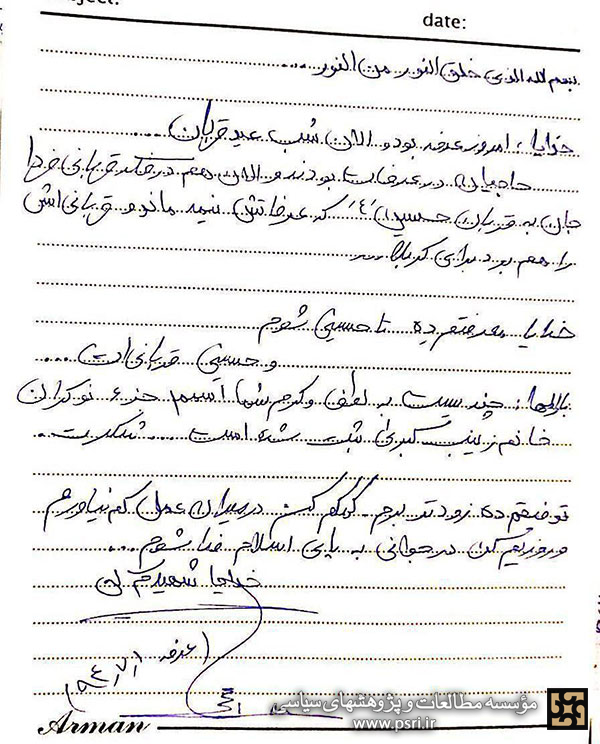 date:
بسم الله الذی خلق النور من النور ...
خدایا، امروز عرفه بود و الان شب عید قربان ...
حاجیان در عرفات بودند و الان هم در فکر قربانی فردا
جان به قربان حسین (ع) که عرفاتش نیمه ماند و قربانی اش
را هم برد برای کربلا ...
خدایا معرفتم ده تا حسینی شوم
و حسینی قربانی ات ...
بارالها، چندیست به لطف و کرم شما اسمم جزء نوکران
خانم زینب کبری ثبت شده است ... شکرت ..
توفیقم ده زودتر بروم. کمکم کن در میدان عمل کم نیاورم
و روزیم کن در جوانی به پای اسلام فدا شوم ...
خدایا شهیدم کن
(عرفه ۹۴,۷,۱)
Arman
مؤسسه مطالعات و پژوهشهای سیاسی
www.psri.ir